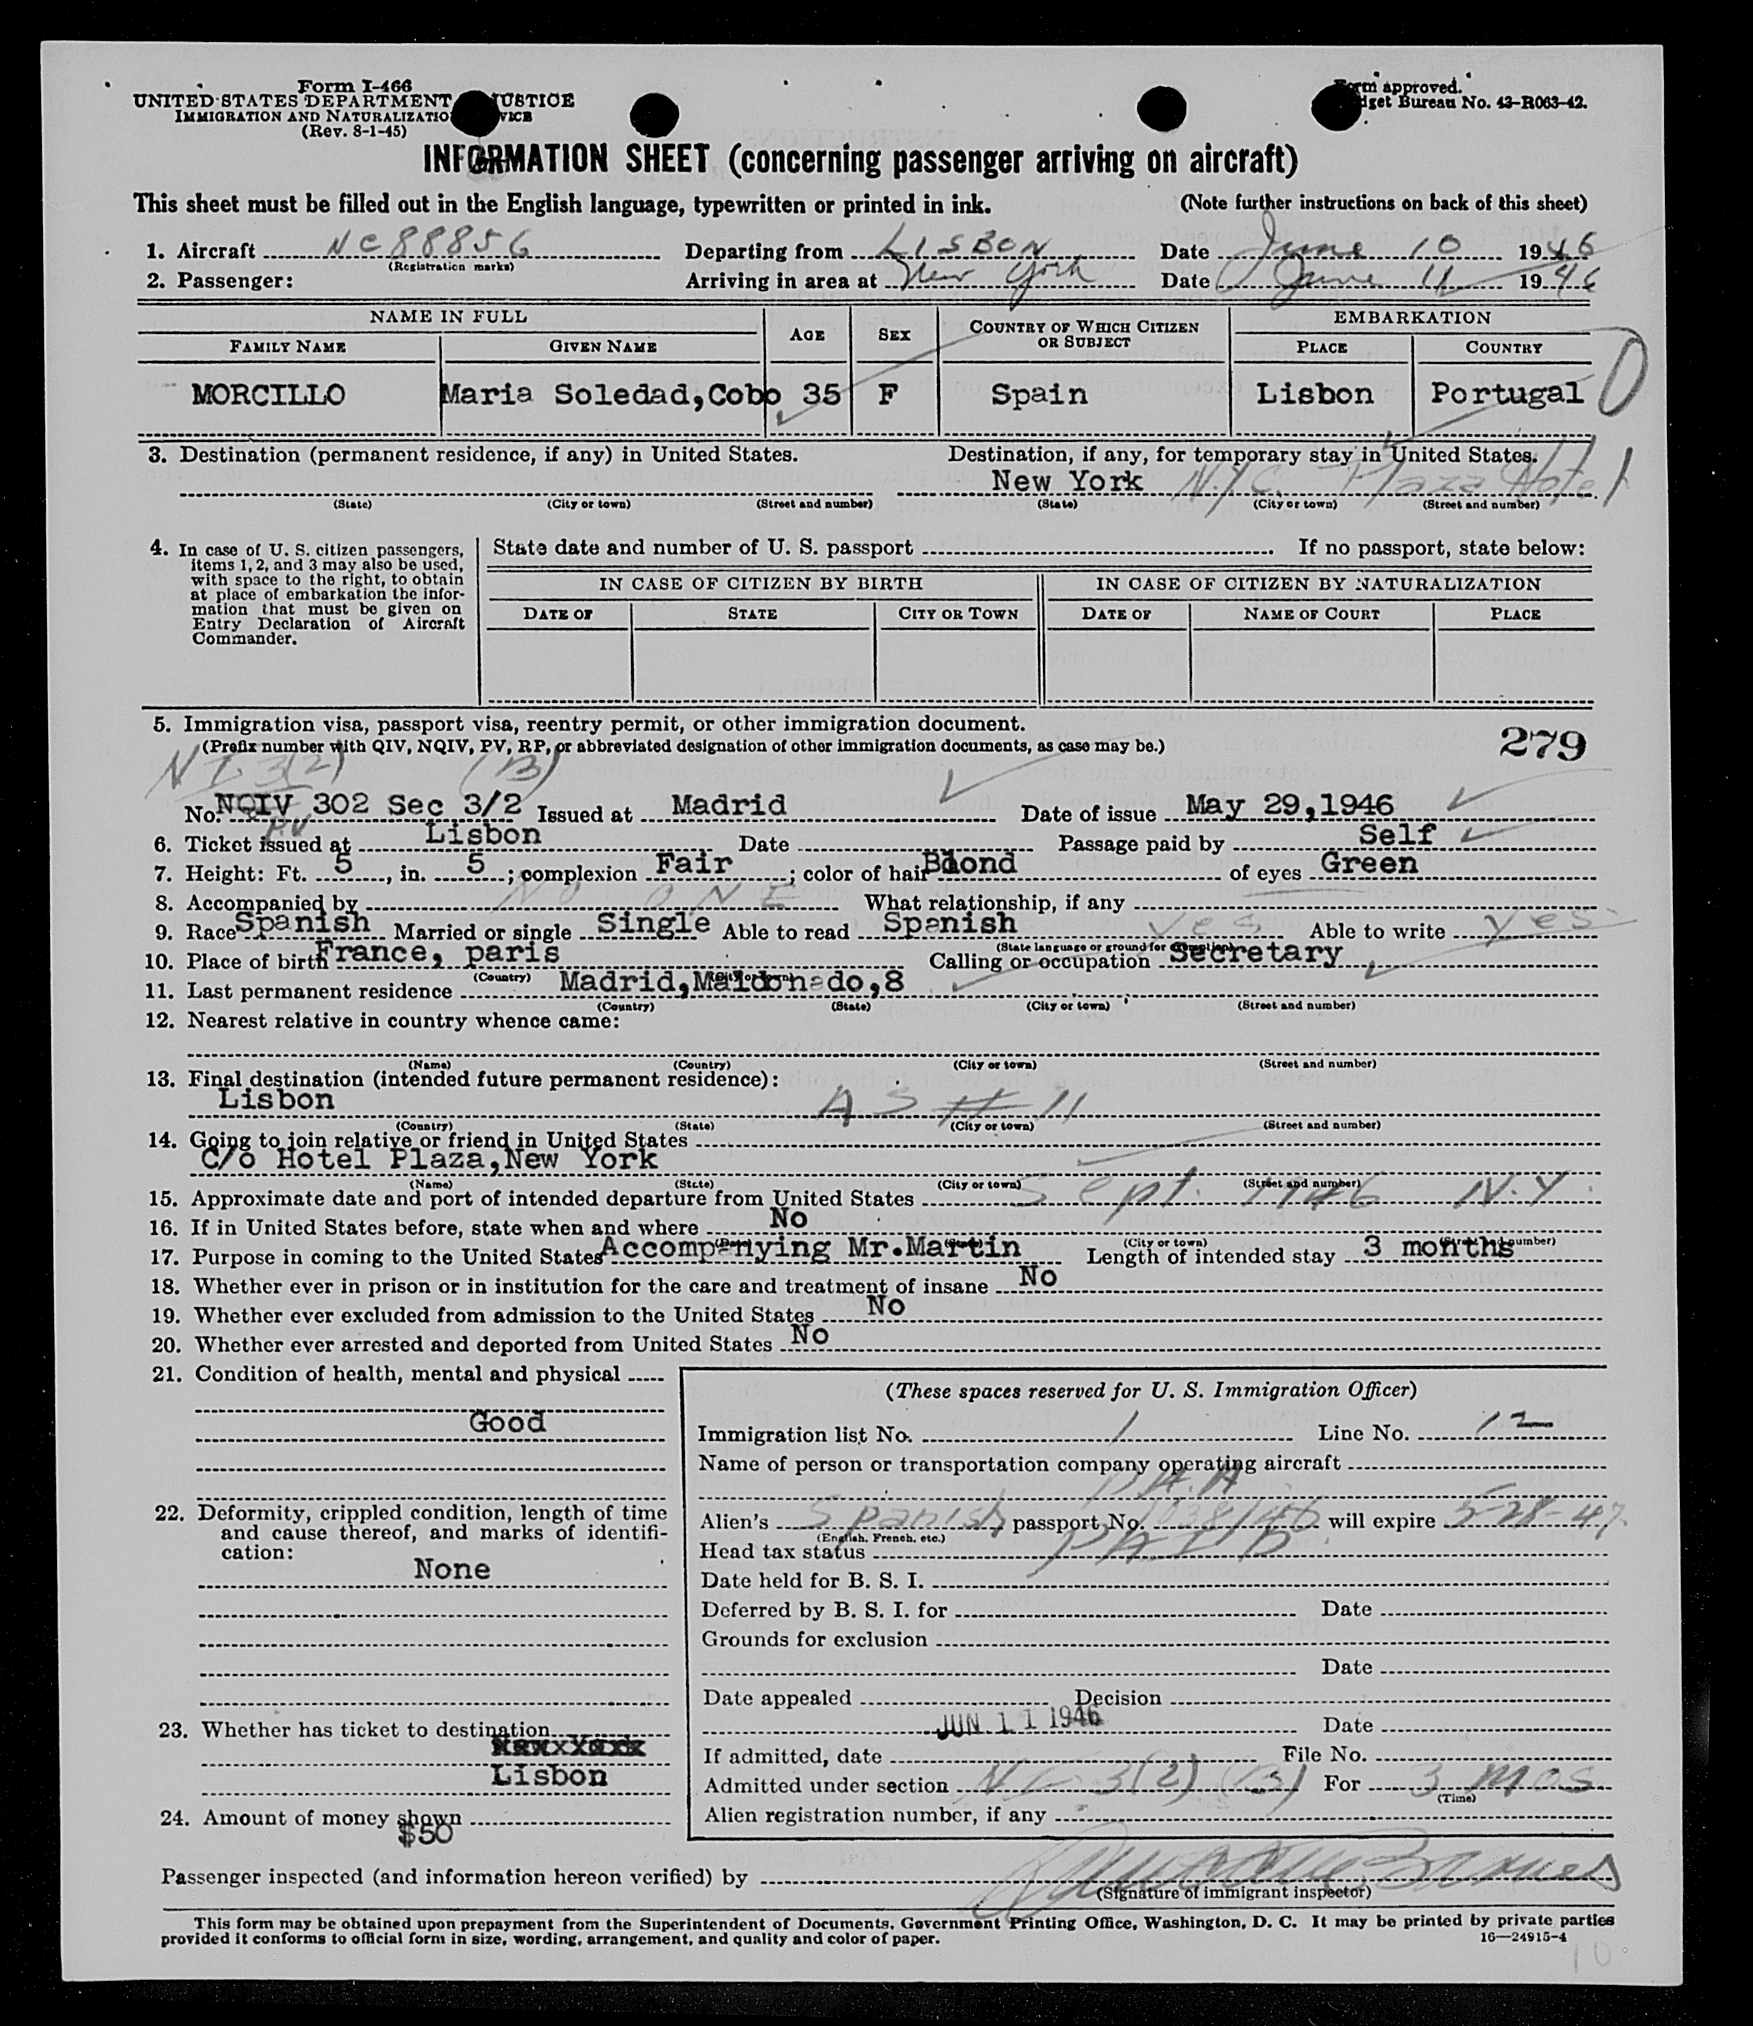 Form I-466
UNITED STATES DEPARTMENT JUSTICE
IMMIGRATION AND NATURALIZATION
(Rev. 8-1-45)
Form approved.
Budget Bureau No. 43-R063-42.
INFORMATION SHEET (concerning passenger arriving on aircraft)
This sheet must be filled out in the English language, typewritten or printed in ink. (Note further instructions on back of this sheet)
1. Aircraft NC88856 Departing from LISBON Date June 10 1946
(Registration marks)
2. Passenger: Arriving in area at New York Date June 11 1946
NAME IN FULL AGE SEX COUNTRY OF WHICH CITIZEN OR SUBJECT EMBARKATION
FAMILY NAME GIVEN NAME PLACE COUNTRY
MORCILLO Maria Soledad,Cobo 35 F Spain Lisbon Portugal
3. Destination (permanent residence, if any) in United States. Destination, if any, for temporary stay in United States.
New York N.Y.C. Plaza Hotel
(State) (City or town) (Street and number) (State) (City or town) (Street and number)
4. In case of U. S. citizen passengers, items 1, 2, and 3 may also be used, with space to the right, to obtain at place of embarkation the information that must be given on Entry Declaration of Aircraft Commander.
State date and number of U. S. passport If no passport, state below:
IN CASE OF CITIZEN BY BIRTH IN CASE OF CITIZEN BY NATURALIZATION
DATE OF STATE CITY OR TOWN DATE OF NAME OF COURT PLACE
5. Immigration visa, passport visa, reentry permit, or other immigration document.
(Prefix number with QIV, NQIV, PV, RP, or abbreviated designation of other immigration documents, as case may be.)
279
3(2) (B)
No. NQIV 302 Sec 3/2 Issued at Madrid Date of issue May 29,1946
PV
6. Ticket issued at Lisbon Date Passage paid by Self
7. Height: Ft. 5, in. 5; complexion Fair; color of hair Blond of eyes Green
8. Accompanied by NO ONE What relationship, if any
9. Race Spanish Married or single Single Able to read Spanish yes Able to write yes
(State language or ground for exemption)
10. Place of birth France, paris Calling or occupation Secretary
(Country) (City or town)
11. Last permanent residence Madrid,Maldonado,8
(Country) (State) (City or town) (Street and number)
12. Nearest relative in country whence came:
(Name) (Country) (City or town) (Street and number)
13. Final destination (intended future permanent residence):
Lisbon AS # 11
(Country) (State) (City or town) (Street and number)
14. Going to join relative or friend in United States
C/o Hotel Plaza,New York
(Name) (State) (City or town) (Street and number)
15. Approximate date and port of intended departure from United States Sept. 1946 N.Y.
16. If in United States before, state when and where No
(Date) (State) (City or town) (Street and number)
17. Purpose in coming to the United States Accompanying Mr.Martin Length of intended stay 3 months
18. Whether ever in prison or in institution for the care and treatment of insane No
19. Whether ever excluded from admission to the United States No
20. Whether ever arrested and deported from United States No
21. Condition of health, mental and physical
Good
22. Deformity, crippled condition, length of time and cause thereof, and marks of identification:
None
23. Whether has ticket to destination
Lisbon
24. Amount of money shown
$50
(These spaces reserved for U. S. Immigration Officer)
Immigration list No. 1 Line No. 12
Name of person or transportation company operating aircraft
P.A.A
Alien's Spanish passport No. will expire 5-28-47.
(English, French, etc.)
Head tax status PAID
Date held for B. S. I.
Deferred by B. S. I. for Date
Grounds for exclusion
Date
Date appealed Decision
JUN 11 1946 Date
If admitted, date File No.
Admitted under section 3(2) (B) For 3 mos
(Time)
Alien registration number, if any
Passenger inspected (and information hereon verified) by
(Signature of immigrant inspector)
This form may be obtained upon prepayment from the Superintendent of Documents, Government Printing Office, Washington, D. C. It may be printed by private parties
provided it conforms to official form in size, wording, arrangement, and quality and color of paper. 16—24915-4
10